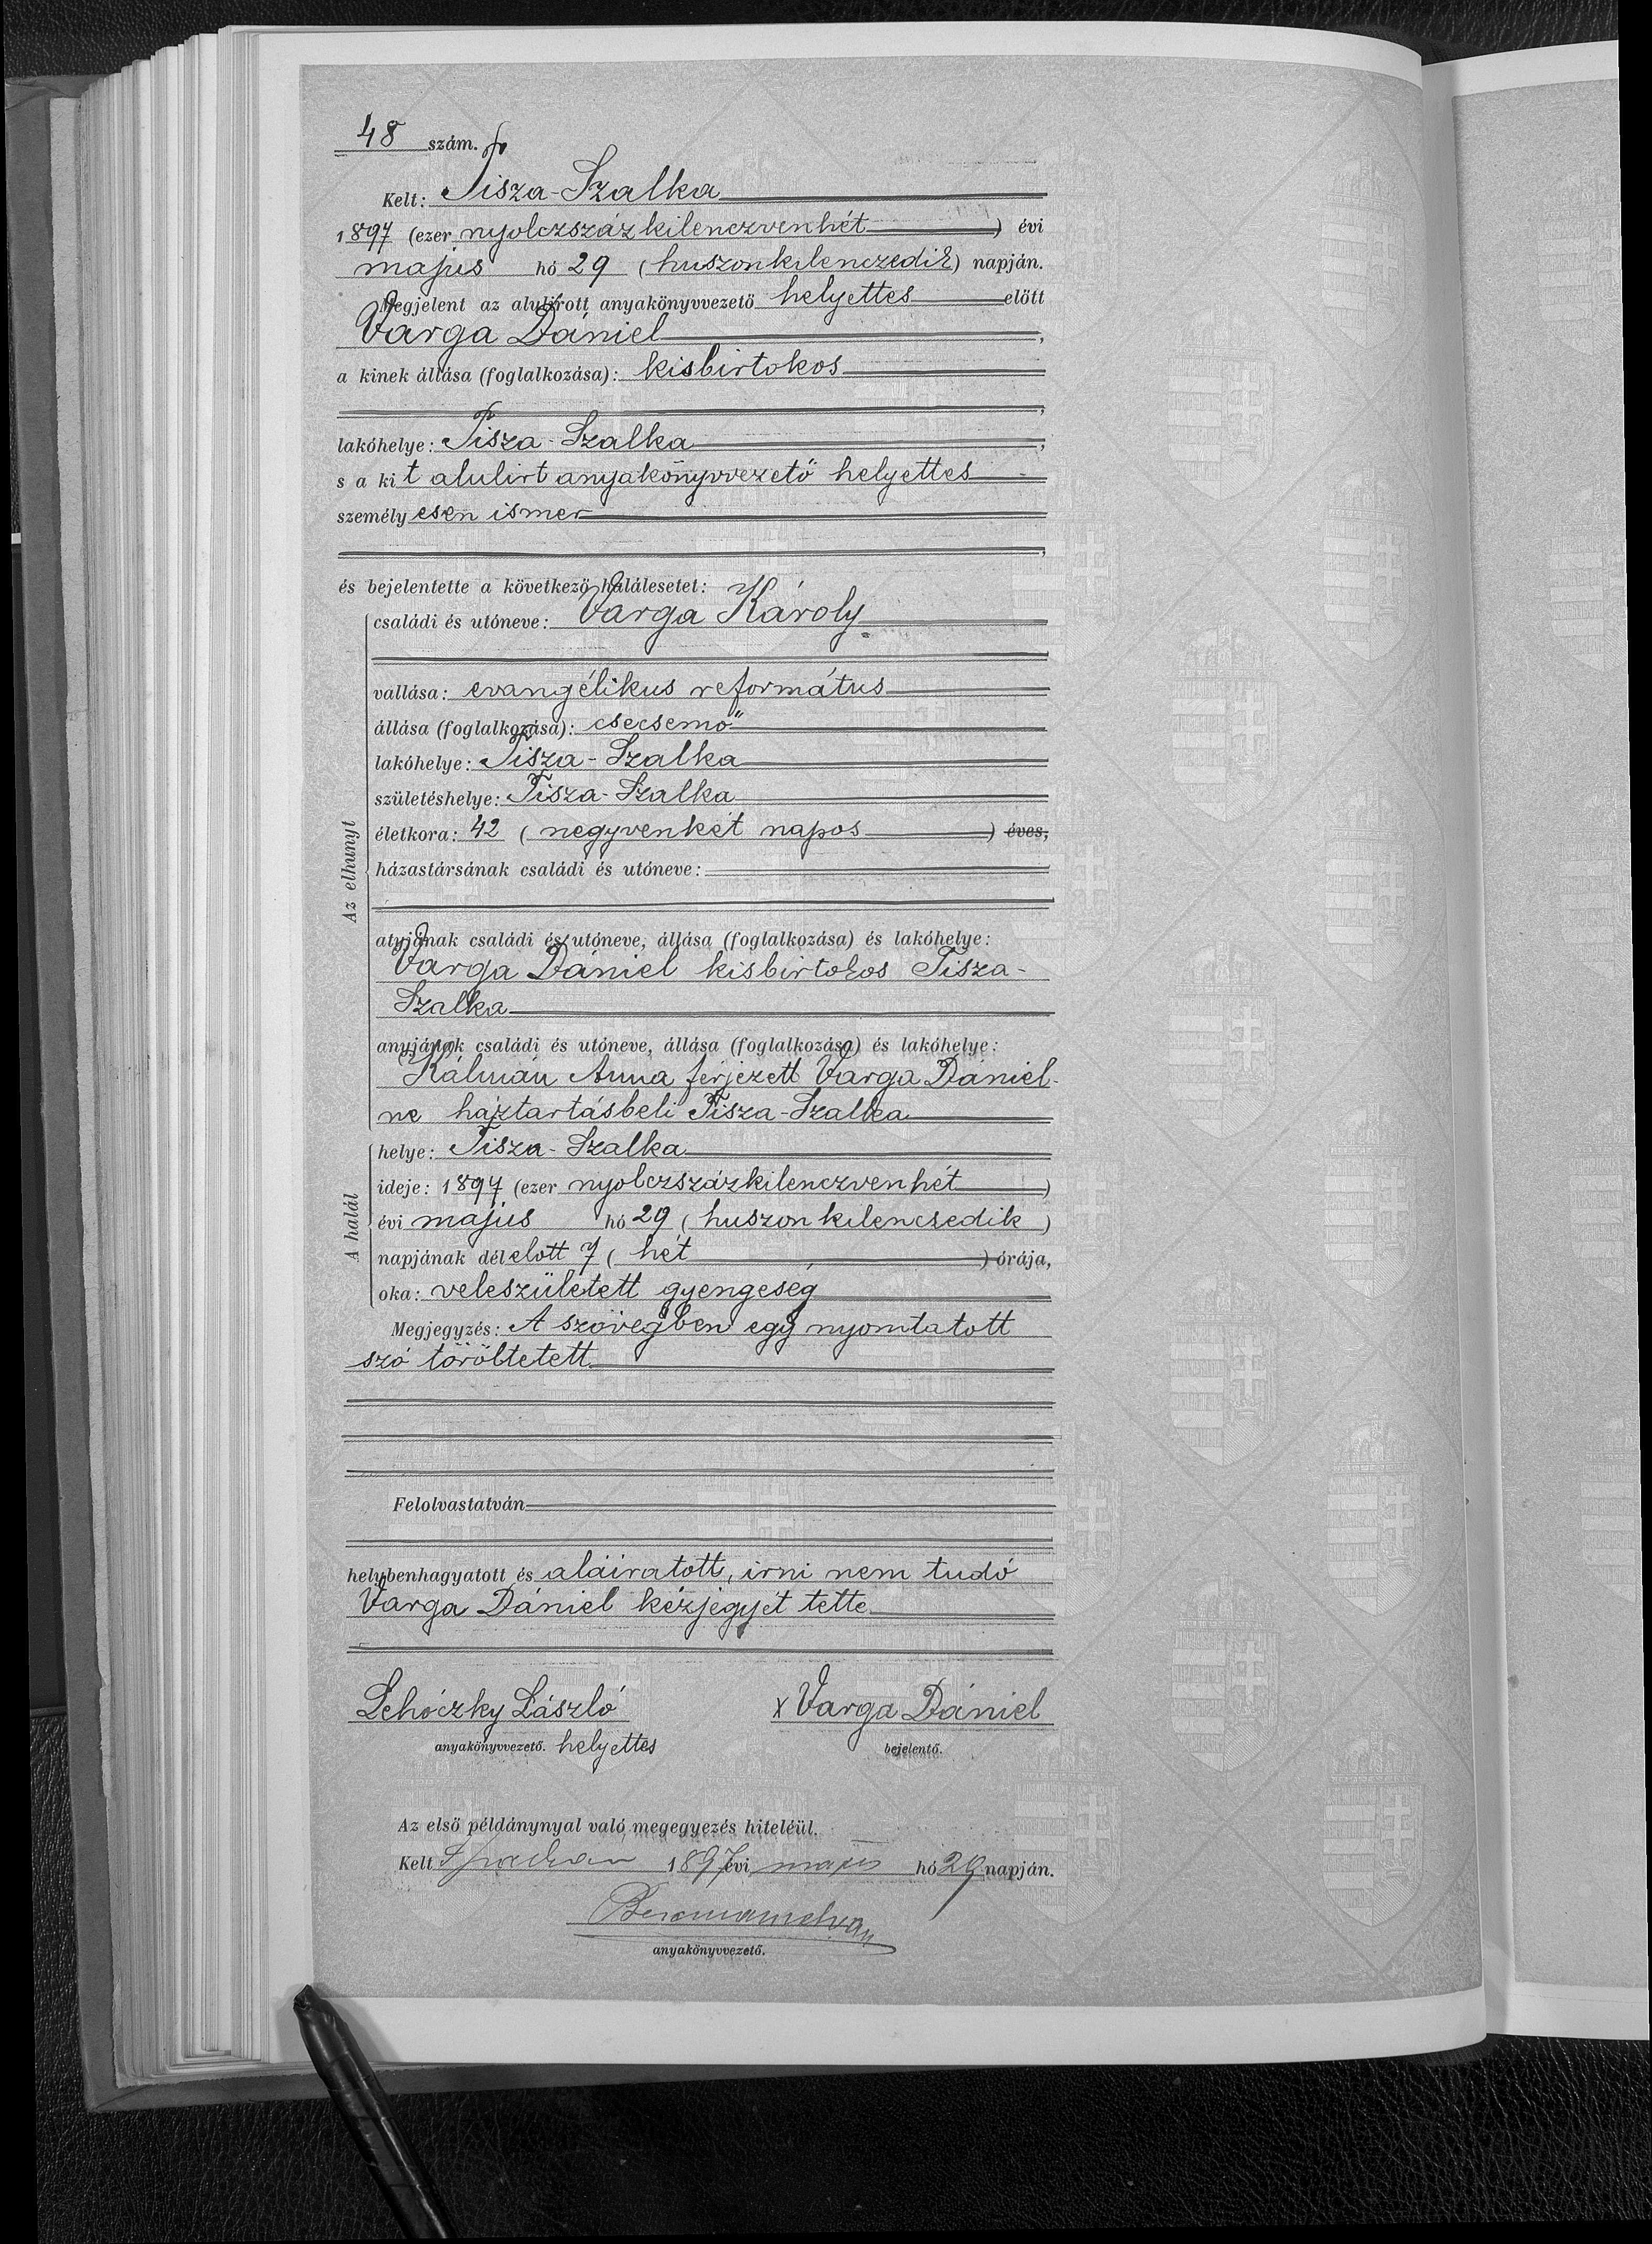 48 szám.
Kelt: Tisza-Szalka
1897 (ezer nyolczszázkilenczvenhét) évi
május hó 29 (huszonkilenczedik) napján.
Megjelent az alulírott anyakönyvvezető helyettes előtt
Varga Dániel,
a kinek állása (foglalkozása): kisbirtokos
,
lakóhelye: Tisza-Szalka,
s a kit alulirt anyakönyvvezető helyettes
személyesen ismer
,
és bejelentette a következő halálesetet:
Az elhunyt
családi és utóneve: Varga Károly
vallása: evangélikus református
állása (foglalkozása): csecsemő
lakóhelye: Tisza-Szalka
születéshelye: Tisza-Szalka
életkora: 42 (negyvenkét napos) éves,
házastársának családi és utóneve:
atyjának családi és utóneve, állása (foglalkozása) és lakóhelye:
Varga Dániel kisbirtokos Tisza-
Szalka
anyjának családi és utóneve, állása (foglalkozása) és lakóhelye:
Kálmán Anna férjezett Varga Dániel-
ne háztartásbeli Tisza-Szalka
A halál
helye: Tisza-Szalka
ideje: 1897 (ezer nyolczszázkilenczvenhét)
évi május hó 29 (huszonkilenczedik)
napjának délelott 7 (hét) órája,
oka: veleszületett gyengeség
Megjegyzés: A szövegben egy nyomtatott
szó töröltetett
Felolvastatván
helybenhagyatott és aláiratott, irni nem tudó
Varga Dániel kézjegyét tette
Lehóczky László
x Varga Dániel
anyakönyvvezető. helyettes
bejelentő.
Az első példánynyal való megegyezés hiteléül.
Kelt 1897 évi május hó 29 napján.
anyakönyvvezető.